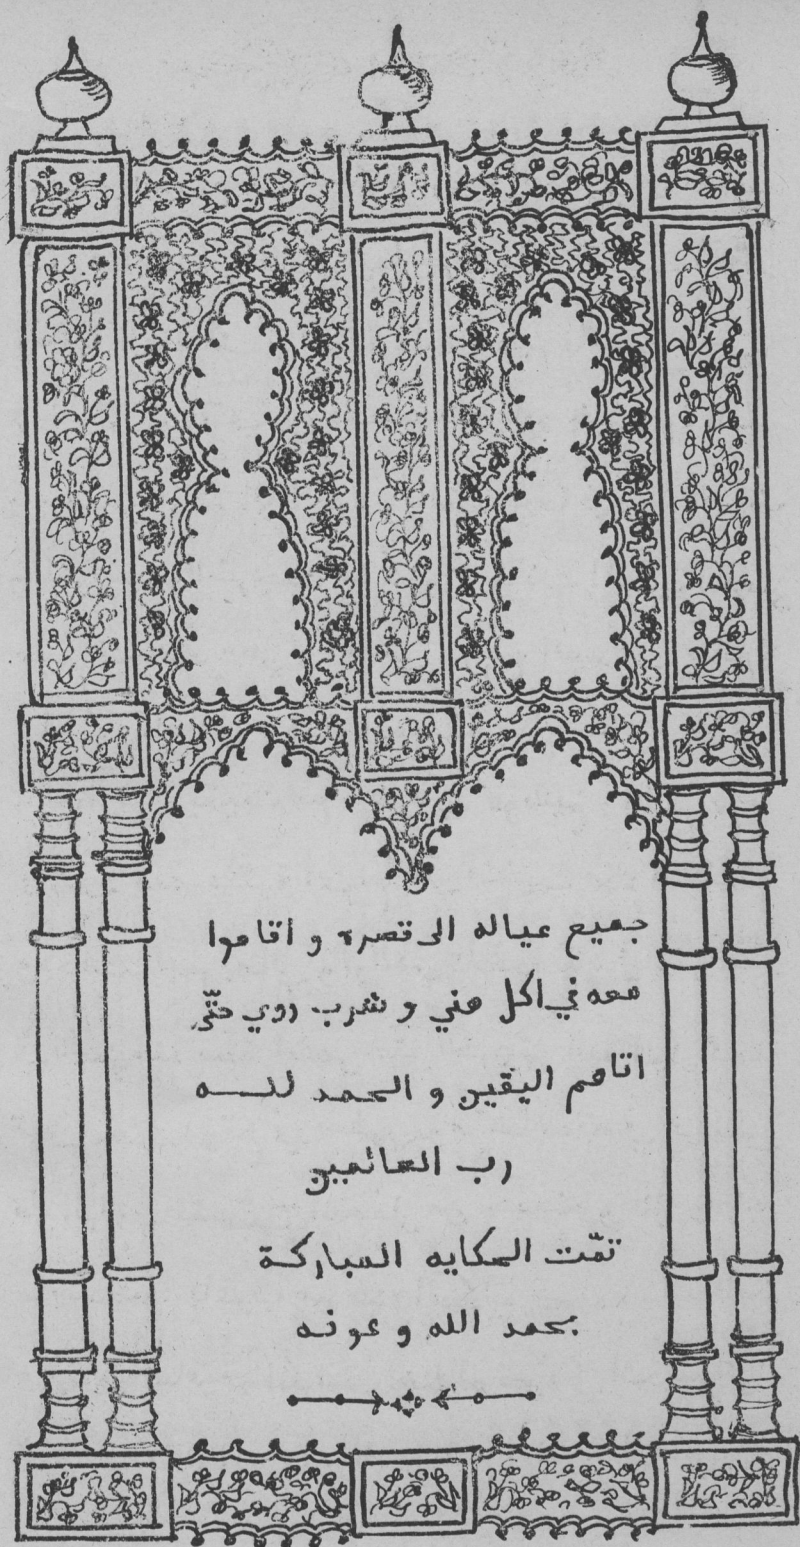 جميع عياله الى قصره و اقاموا
معه في اكل هني و شرب روي حتّى
اتاهم اليقين و الحمد للـــه
رب العالمين
تمّت الحكايه المباركة
بحمد الله و عونه